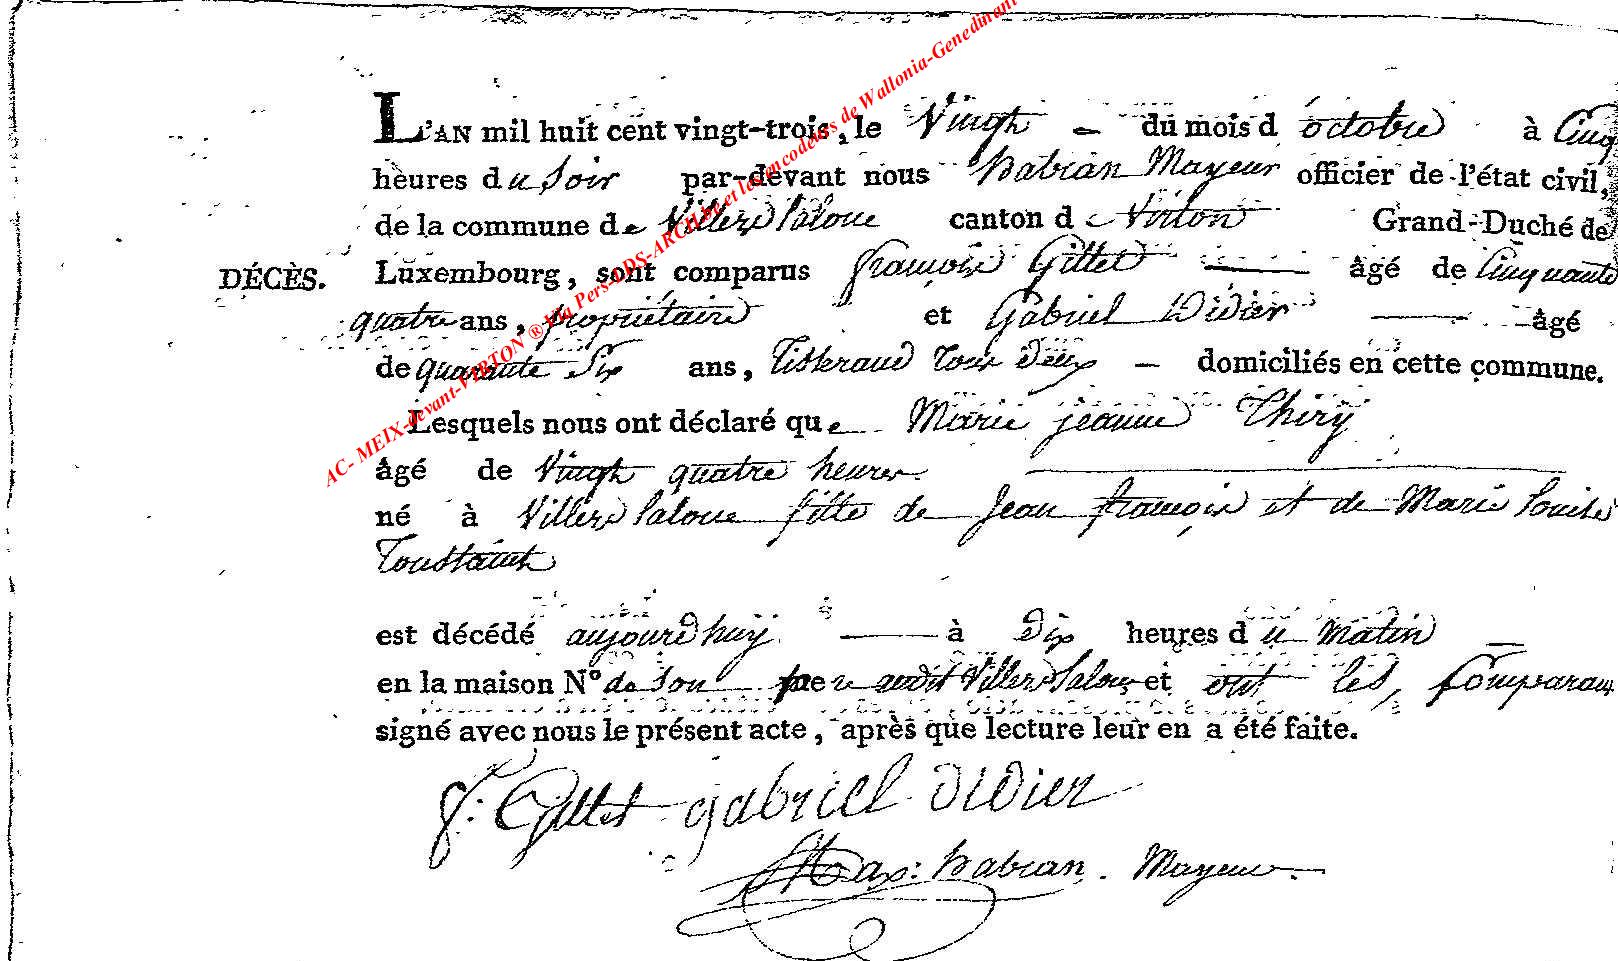 L'AN mil huit cent vingt-trois, le Vingt — du mois d'octobre à Cinq
heures du Soir par-devant nous habran Mayeur officier de l'état civil,
de la commune de Villers laloue canton de Virton Grand-Duché de
DÉCÈS. Luxembourg, sont comparus françois Gillet — âgé de Cinquante
quatre ans, propriétaire et Gabriel Didier — âgé
de quarante Six ans, Tisserand Tous Deux — domiciliés en cette commune.
Lesquels nous ont déclaré que Marie jeanne Thiry
âgé de Vingt quatre heures.
né à Villers laloue fille de Jean françois et de Marie louise
Toustaint
est décédé aujourd'huy — à Dix heures du Matin —
en la maison N° de Son pere audit Villers Laloue et ont les Comparans
signé avec nous le présent acte, après que lecture leur en a été faite.
f: Gillet gabriel didier
habran. Mayeur.
AC- MEIX-devant-VIRTON ® Via Pers-DPS-ARCH.be et les encodeurs de Wallonia-Genedinant